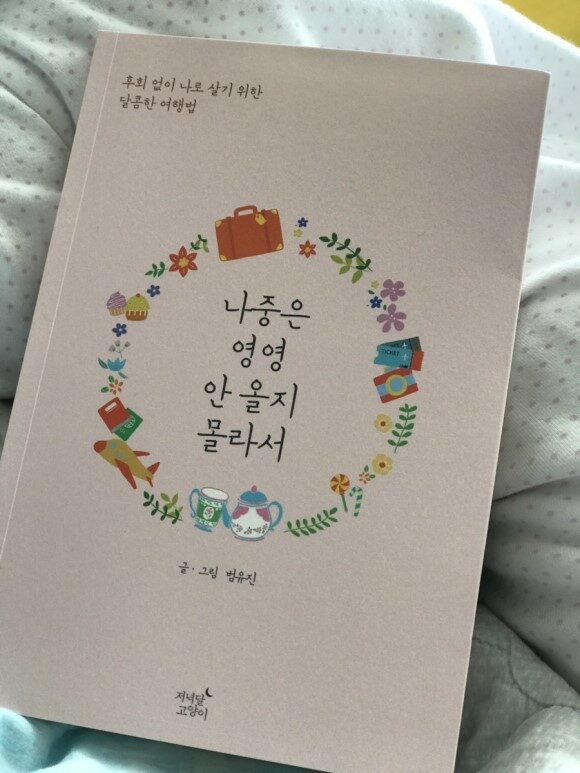 후회 없이 나로 살기 위한
달콤한 여행법
TICKET
나중은
영영
안 올지
몰라서
글·그림 범유진
저녁달
고양이